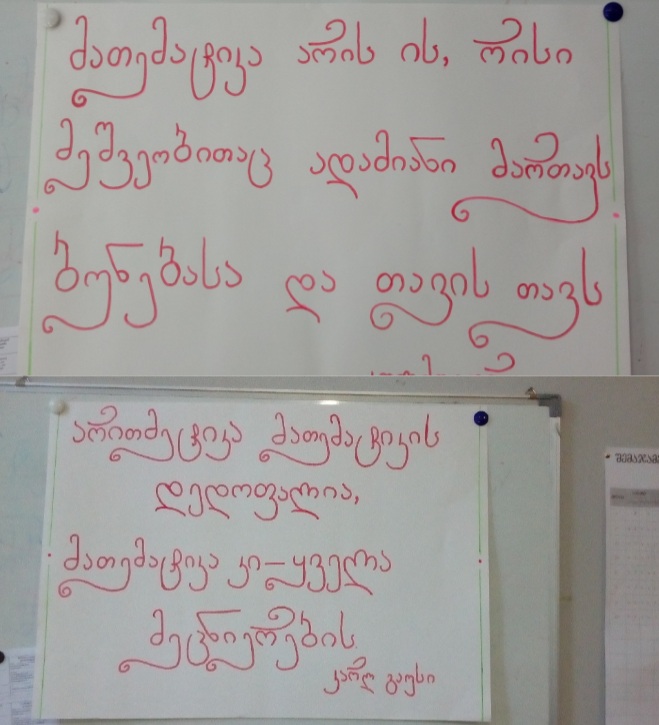 მათემატიკა არის ის, რისი
მეშვეობითაც ადამიანი მართავს
ბუნებასა და თავის თავს
არითმეტიკა მათემატიკის
დედოფალია,
მათემატიკა კი – ყველა
მეცნიერების
კარლ გაუსი